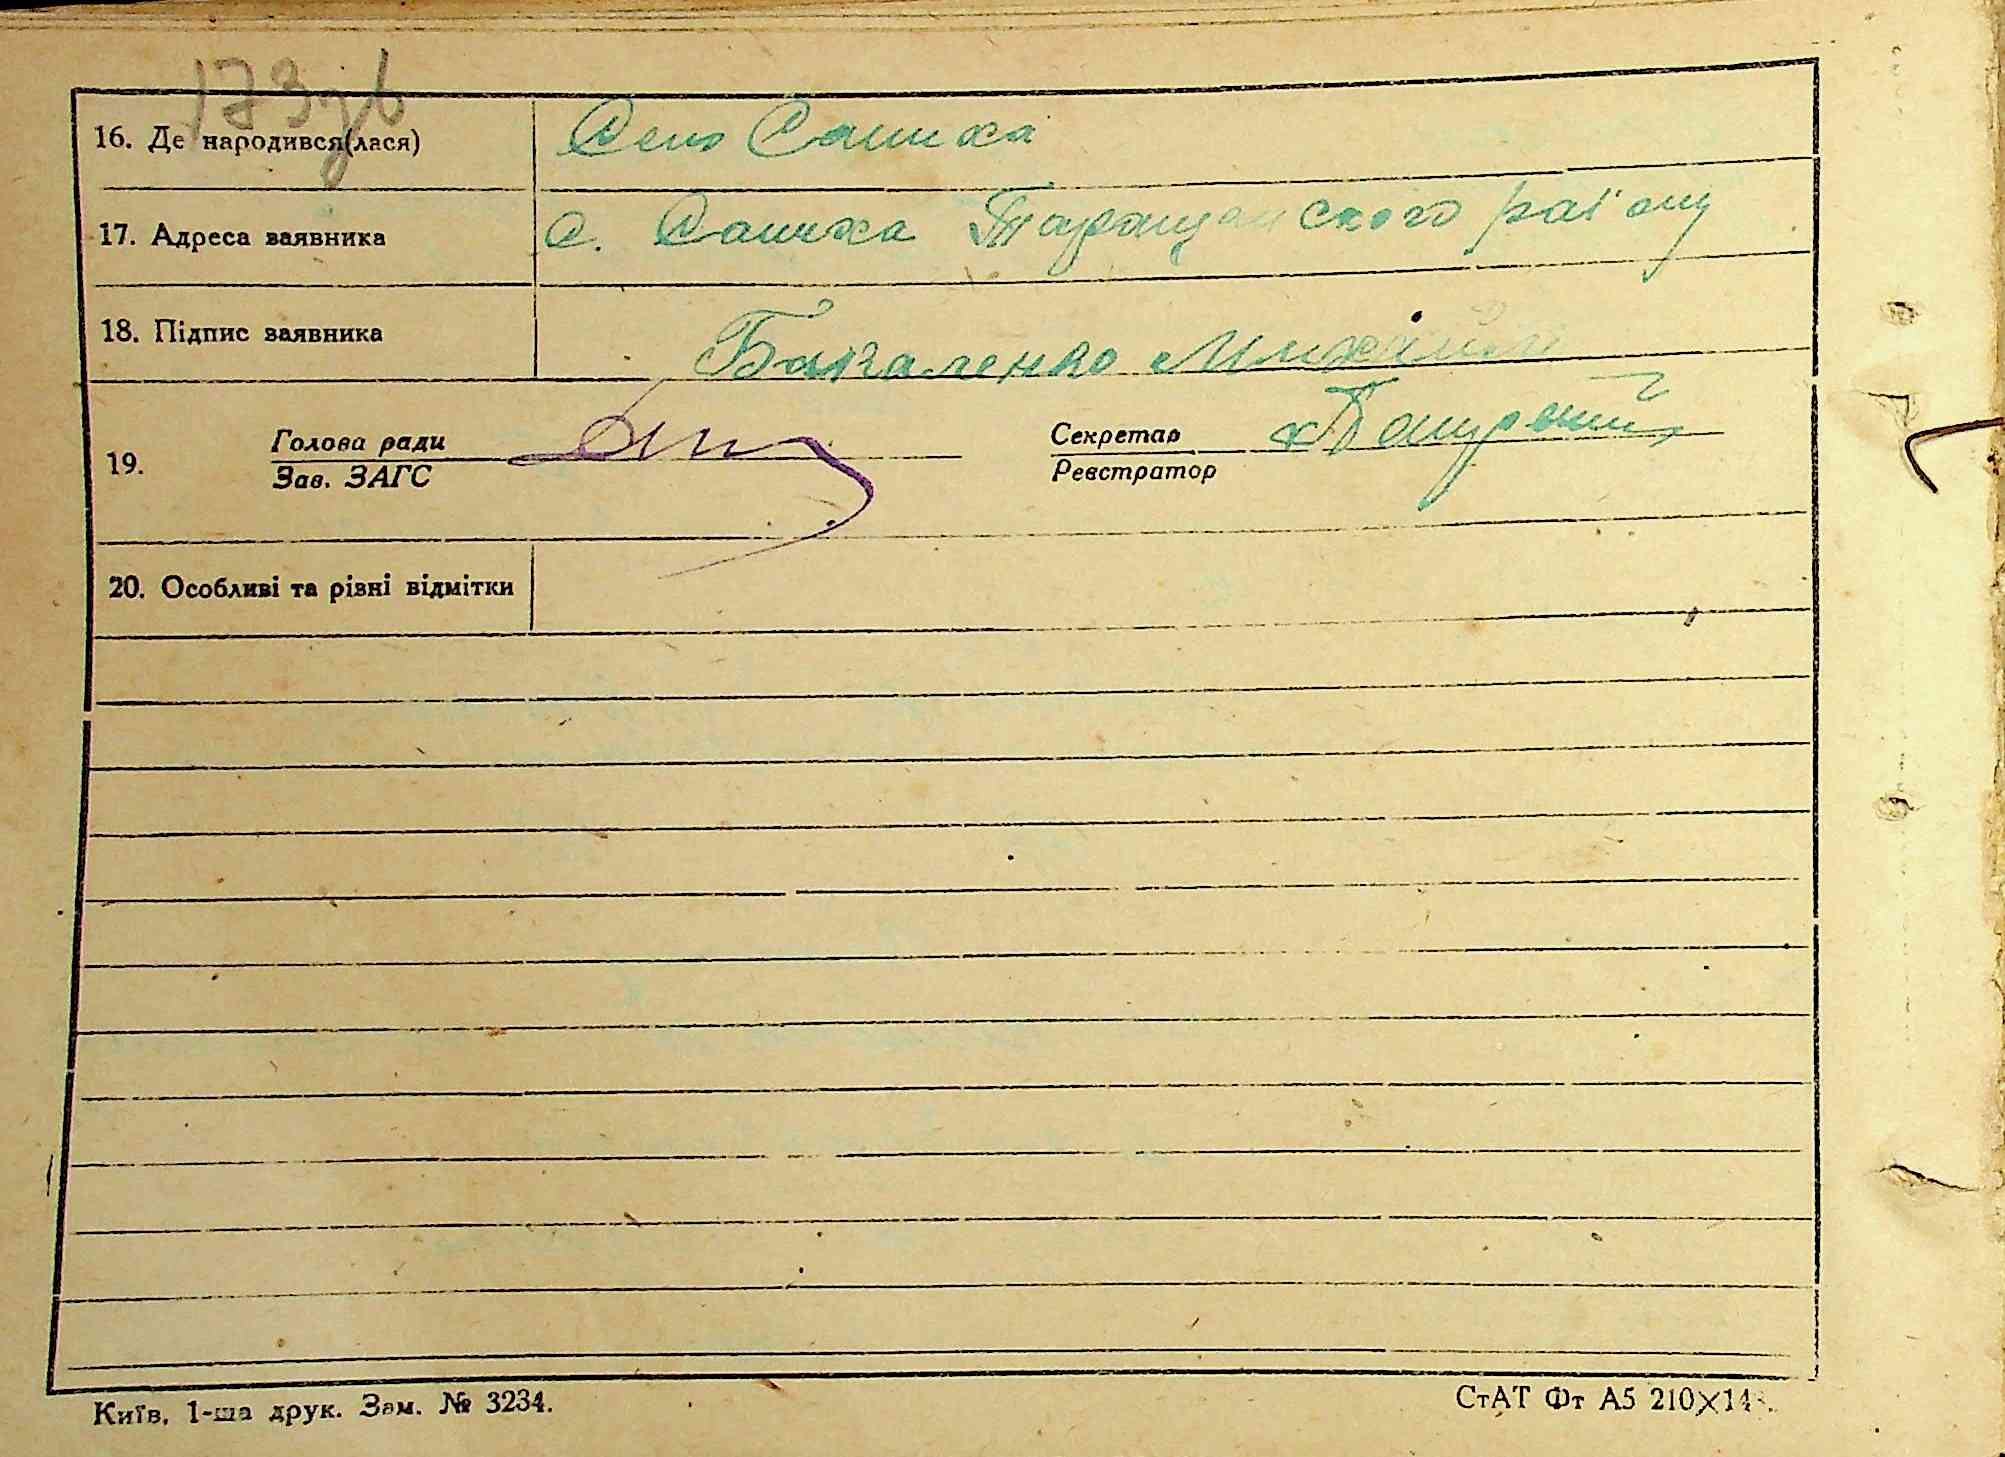 173зв
16. Де народився(лася) Село Саниха
17. Адреса заявника с. Саниха Таращанского раϊону
18. Підпис заявника Бакаленко Михайло
19. Голова ради Секретар
Зав. ЗАГС Реєстратор
20. Особливі та різні відмітки
Київ, 1-ша друк. Зам. № 3234.
СтАТ Фт А5 210×14